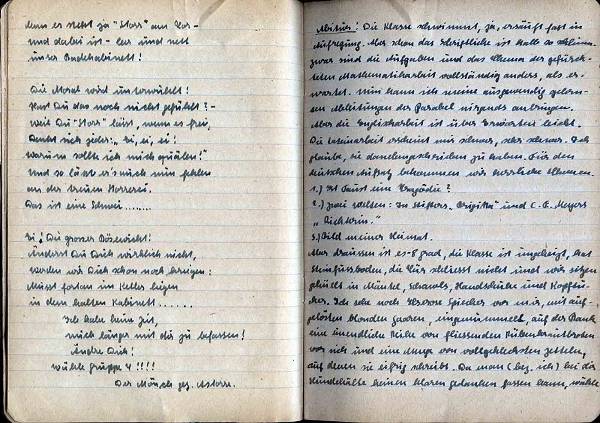 denn es steht ja "Storr" am Tor -
und dabei ist - leer und nett
unser Badekabinett!
Die Moral wird unterwühlt!
Hast Du das noch nicht gefühlt? -
weil Du "Storr" läßt, wenn es frei,
Denkt sich jeder: "Ei, ei, ei!
warum sollte ich mich quälen!"
Und so läßt er's mein
an der treuen
Das ist eine Schwei.......
Du grosser Bösewicht!
Änderst Du Dich wirklich nicht,
werden wir Dich schon noch kriegen:
Musst fortan im Keller liegen
in dem kalten Kabinett ......
Ich habe keine Zeit,
mich länger mit dir zu befassen!
Ändre Dich!
wähle Gruppe 4!!!!
Der Mönch gez.
Abitur! Die Klasse schwimmt, ja, ersäuft fast in
Aufregung. Aber schon das Schriftliche ist halb so schlimm.
zwar sind die Aufgaben und das Thema der gefürch-
teten Mathematikarbeit vollständig anders, als er-
wartet. Nun kann ich meine auswendig gelern-
ten Ableitungen der Parabel nirgends anbringen.
Aber die Englischarbeit ist über Erwarten leicht.
Die Lateinarbeit erscheint mir schwer, sehr schwer. Ich
glaube, sie danebengeschrieben zu haben. Für den
deutschen Aufsatz bekommen wir herrliche Themen.
1.) Ist Faust eine Tragödie?
2.) Zwei Welten: In Stifters "Brigitta" und C. F. Meyers
"Richterin."
3.) Bild meiner Heimat.
Aber draussen ist es -8 Grad, die Klasse ist ungeheizt, hat
Steinfussboden, die Tür schliesst nicht und wir sitzen
gehüllt in Mäntel, Schawls, Handschuhe und Kopftü-
cher. Ich sehe noch Speicher vor mir, mit auf-
gelösten blonden Haaren, eingemummelt, auf der Bank
eine unendliche Reihe von fliessenden Rübenkrautbroten
vor sich und eine Menge von vollgekleckstem Zetteln,
auf denen sie eifrig schreibt. Da man (bez. ich) bei der
Hundekälte keinen klaren Gedanken fassen kann, wähle